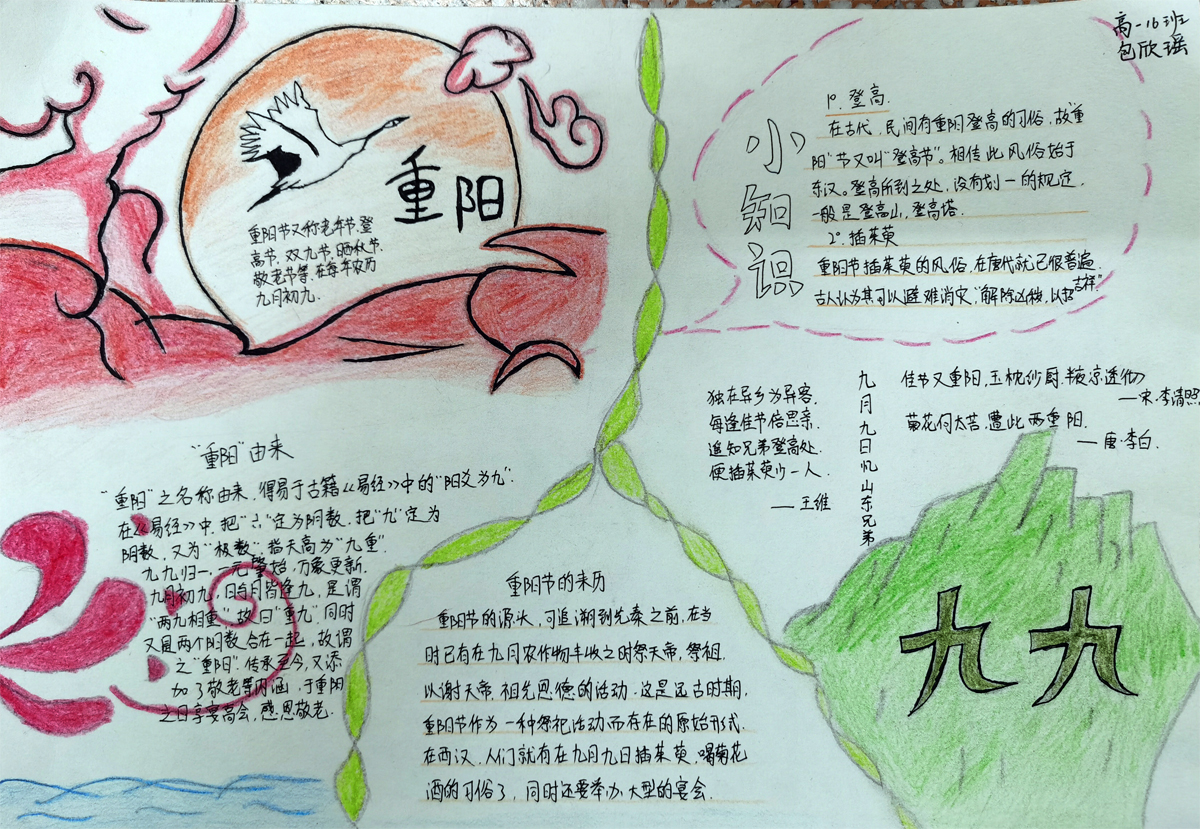 高一16班
包欣瑶
重阳
重阳节又称老年节、登
高节、双九节、晒秋节、
敬老节等,在每年农历
九月初九.
小知识
1°. 登高.
在古代,民间有重阳登高的习俗,故“重
阳”节又叫“登高节”。相传此风俗始于
东汉。登高所到之处,没有划一的规定,
一般是登高山,登高塔.
2°. 插茱萸
重阳节插茱萸的风俗,在唐代就已很普遍
古人认为其可以避难消灾,“解除凶秽,以招吉祥”
独在异乡为异客,
每逢佳节倍思亲.
遥知兄弟登高处,
便插茱萸少一人.
——王维
九月九日忆山东兄弟
佳节又重阳,玉枕纱厨,半夜凉透彻
——宋·李清照
菊花何太苦,遭此两重阳.
——唐·李白.
“重阳”由来
“重阳”之名称由来,得易于古籍《易经》中的“阳爻为九”.
在《易经》中,把“六”定为阴数,把“九”定为
阴数,又为“极数”,指天高为“九重”.
九九归一,一元肇始,万象更新.
九月初九,日与月皆逢九,是谓
“两九相重”,故曰“重九”,同时
又是两个阴数合在一起,故谓
之“重阳”.传承至今,又添
加了敬老等内涵,于重阳
之日享宴高会,感恩敬老.
重阳节的来历
重阳节的源头,可追溯到先秦之前,在当
时已有在九月农作物丰收之时祭天帝,祭祖,
以谢天帝、祖先恩德的活动.这是远古时期,
重阳节作为一种祭祀活动而存在的原始形式.
在西汉,人们就有在九月九日插茱萸,喝菊花
酒的习俗了,同时还要举办大型的宴会.
九九